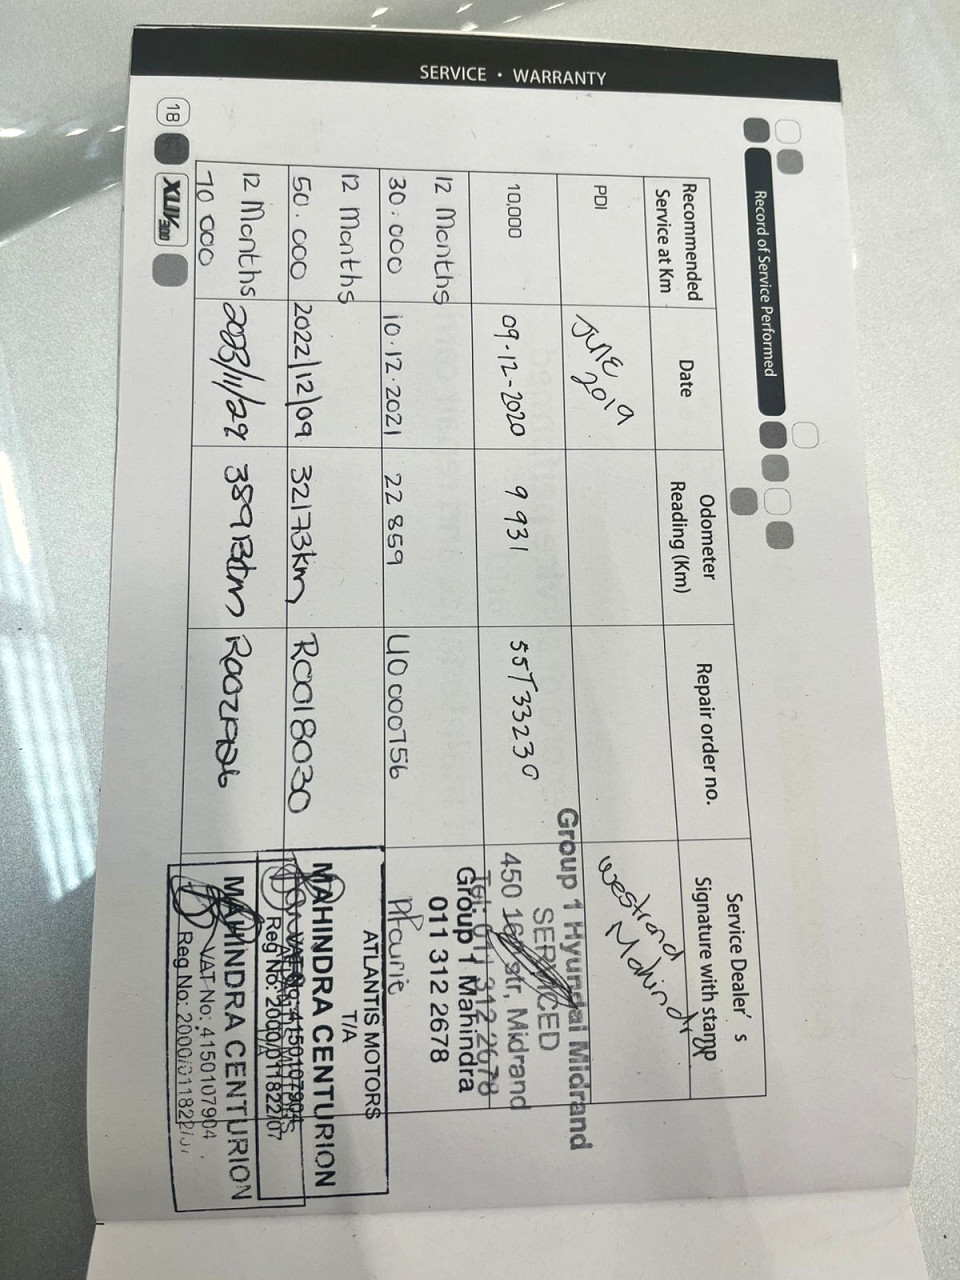 SERVICE • WARRANTY
Record of Service Performed
Recommended Service at Km
Date
Odometer Reading (Km)
Repair order no.
Service Dealer's Signature with stamp
PDI
JUNE 2019
Westrand Mahindra
10,000
09-12-2020
9 931
55T33230
Group 1 Hyundai Midrand
SERVICED
450 16th str, Midrand
Tel: 011 312 2678
12 Months
30.000
10.12.2021
22 859
U0000756
Group 1 Mahindra
011 312 2678
12 Months
50.000
2022/12/09
32173km
R0018030
ATLANTIS MOTORS
T/A
MAHINDRA CENTURION
VAT No: 4150107904
Reg No: 2000/011822/07
12 Months
70 000
2023/11/29
38913km
MAHINDRA CENTURION
VAT No: 4150107904
Reg No: 2000/011822/07
18
XUV300